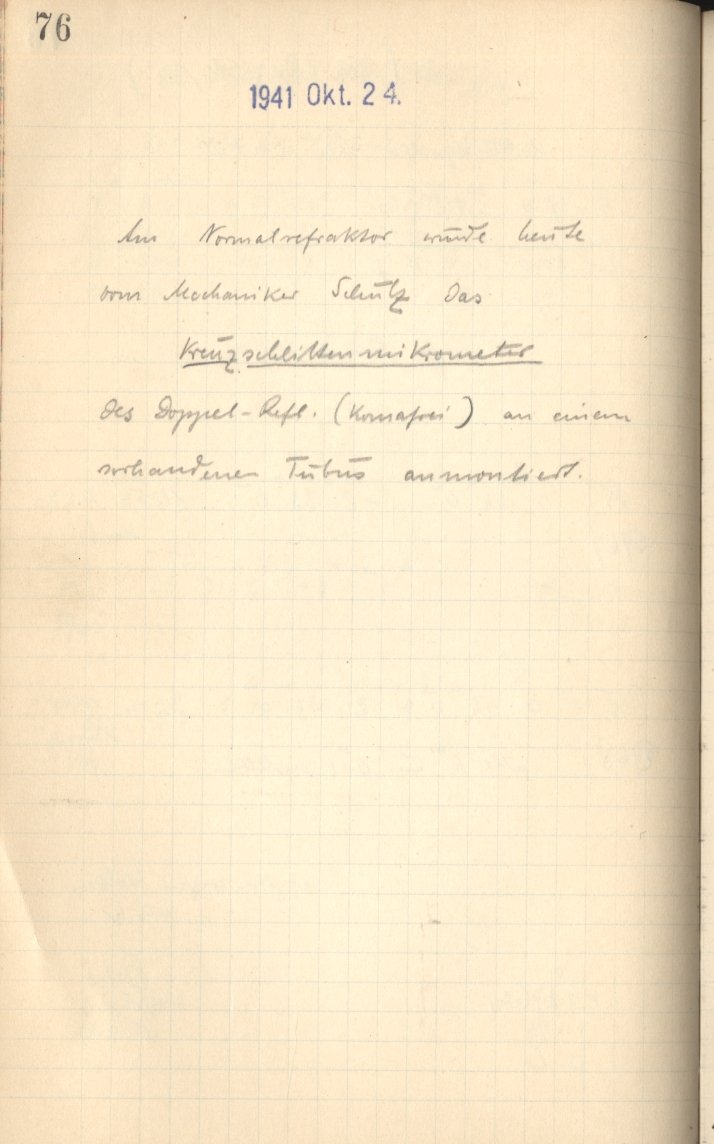 76
1941 Okt. 24.
Am Normalrefraktor wurde heute
vom Mechaniker Schütz das
Kreuzschlittenmikrometer
des Doppel-Refl. (Komafrei) an einem
vorhandenen Tubus anmontiert.